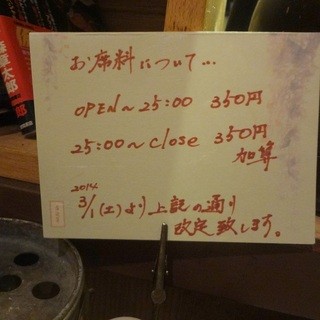 お席料について...
OPEN~25:00 350円
25:00~close 350円
加算
2014
3/1(土)より上記の通り
改定致します。